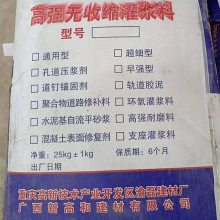 高强无收缩灌浆料
型号
□通用型 □超细型
□孔道压浆剂 □早强型
□道钉锚固剂 □轨道胶泥
□聚合物道路修补料 □环氧灌浆料
□水泥基自流平砂浆 □高强耐磨料
□混凝土表面修复剂 □支座灌浆料
净重：25kg±1kg 保质期：6个月
出厂日期
重庆高新技术产业开发区渝磊建材厂
广西新高和建材有限公司